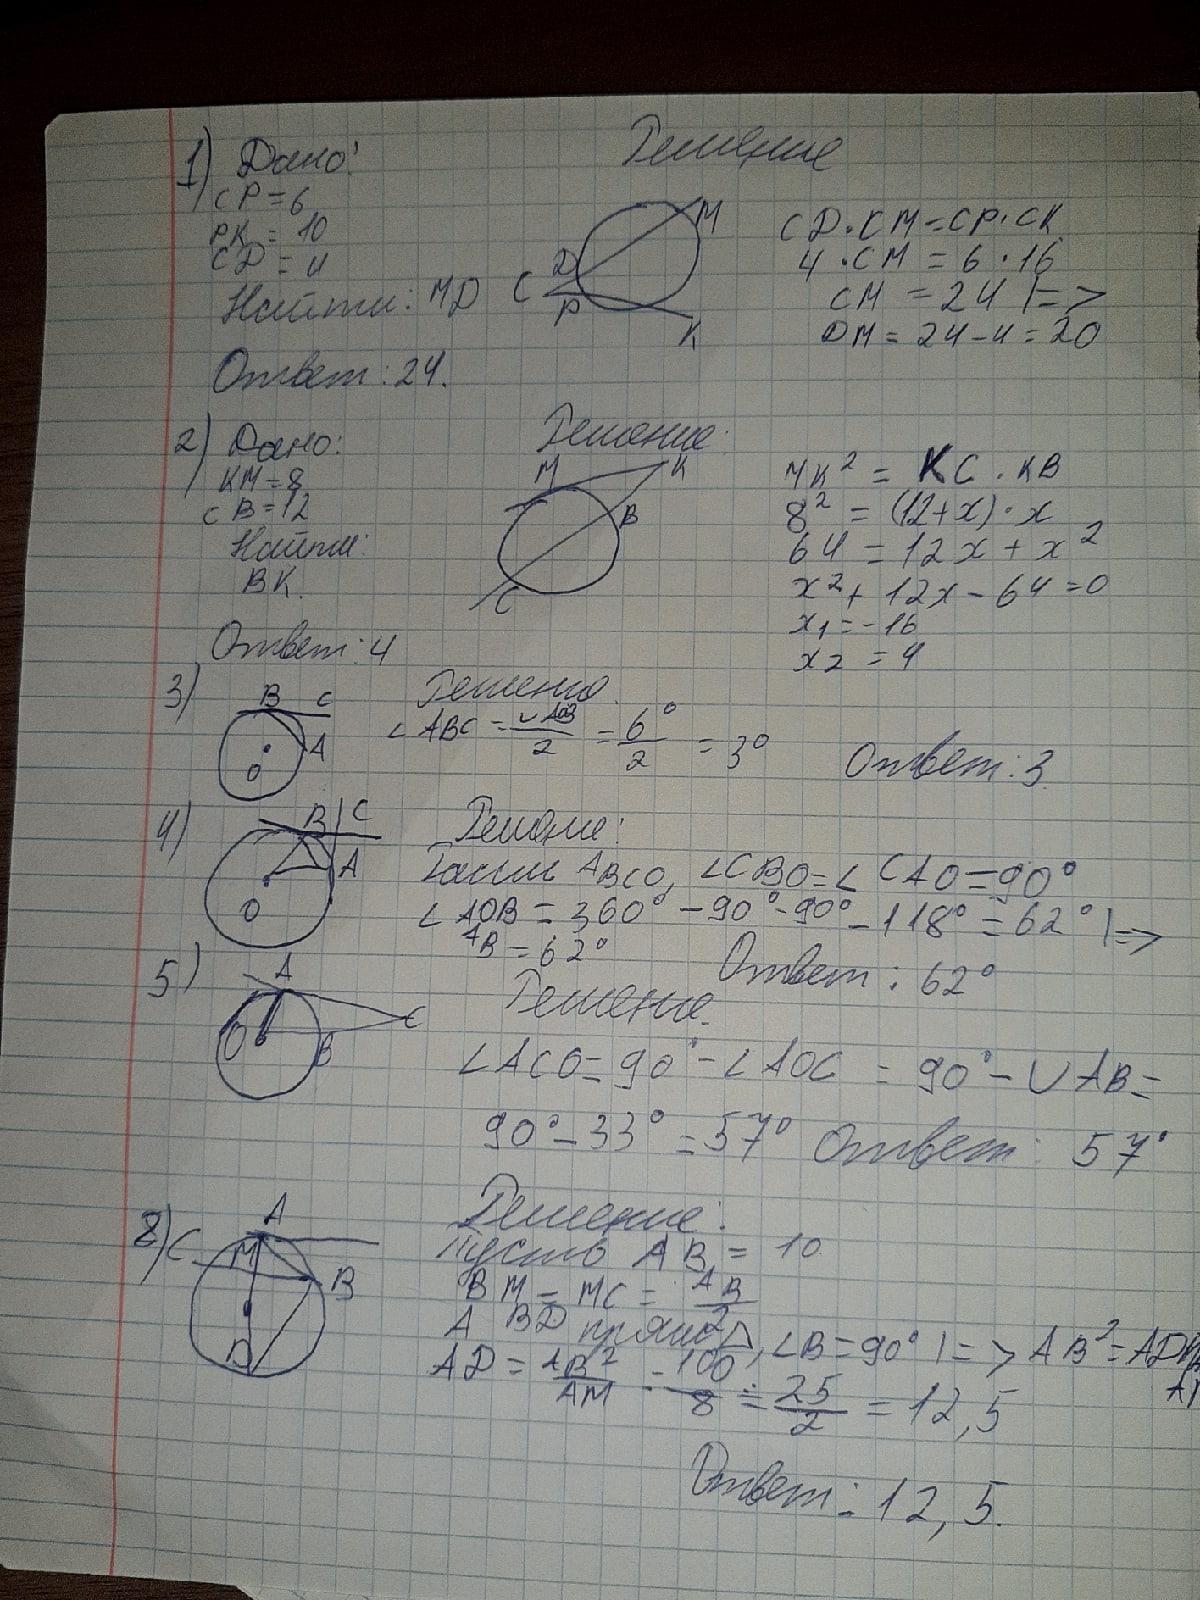 1) Дано: Решение
CP = 6
PK = 10
CD = 4
Найти: MD
M
D
C
P
K
CD · KM = CP · CK
4 · CM = 6 · 16
CM = 24 |=>
DM = 24 - 4 = 20
Ответ: 24.
2) Дано: Решение:
KM = 8
CB = 12
Найти:
BK.
M K
B
C
MK² = KC · KB
8² = (12+x) · x
64 = 12x + x²
x² + 12x - 64 = 0
x₁ = -16
x₂ = 4
Ответ: 4
3) B C Решение
A
O
∠ABC = ∪AOB/2 = 6°/2 = 3° Ответ: 3.
4) B C Решение:
A
O
ABCO, ∠CBO = ∠CAO = 90°
∠AOB = 360° - 90° - 90° - 118° = 62° |=>
AB = 62° Ответ: 62°
5) A Решение.
O B C
∠ACO = 90° - ∠AOC = 90° - ∪AB =
90° - 33° = 57° Ответ: 57°
8) C A Решение:
M B
D
Пусть AB = 10
BM = MC = AB/2
ABD прямо△, ∠B = 90° |=> AB² = AD
AD = AB²/AM = 100/8 = 25/2 = 12,5
Ответ: 12,5.